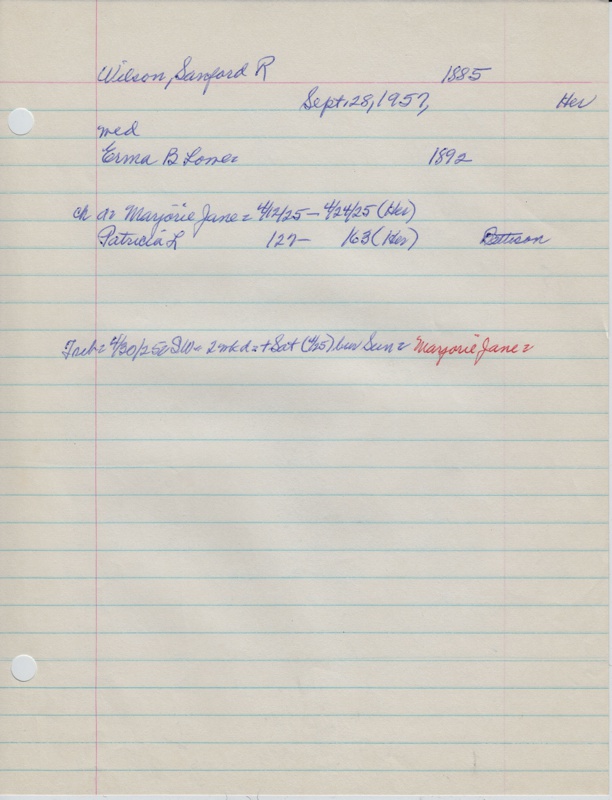 Wilson, Sanford R 1885
Sept. 28, 1957, Her
med
Erma B Lowe= 1892
ch a= Marjorie Jane= 4/12/25 – 4/24/25 (Her)
Patricia L 127– 163 (Her) Bettison
Trib= 4/30/25= SW= 2 wk d= + Sat (4/25) bur Sun= Marjorie Jane=